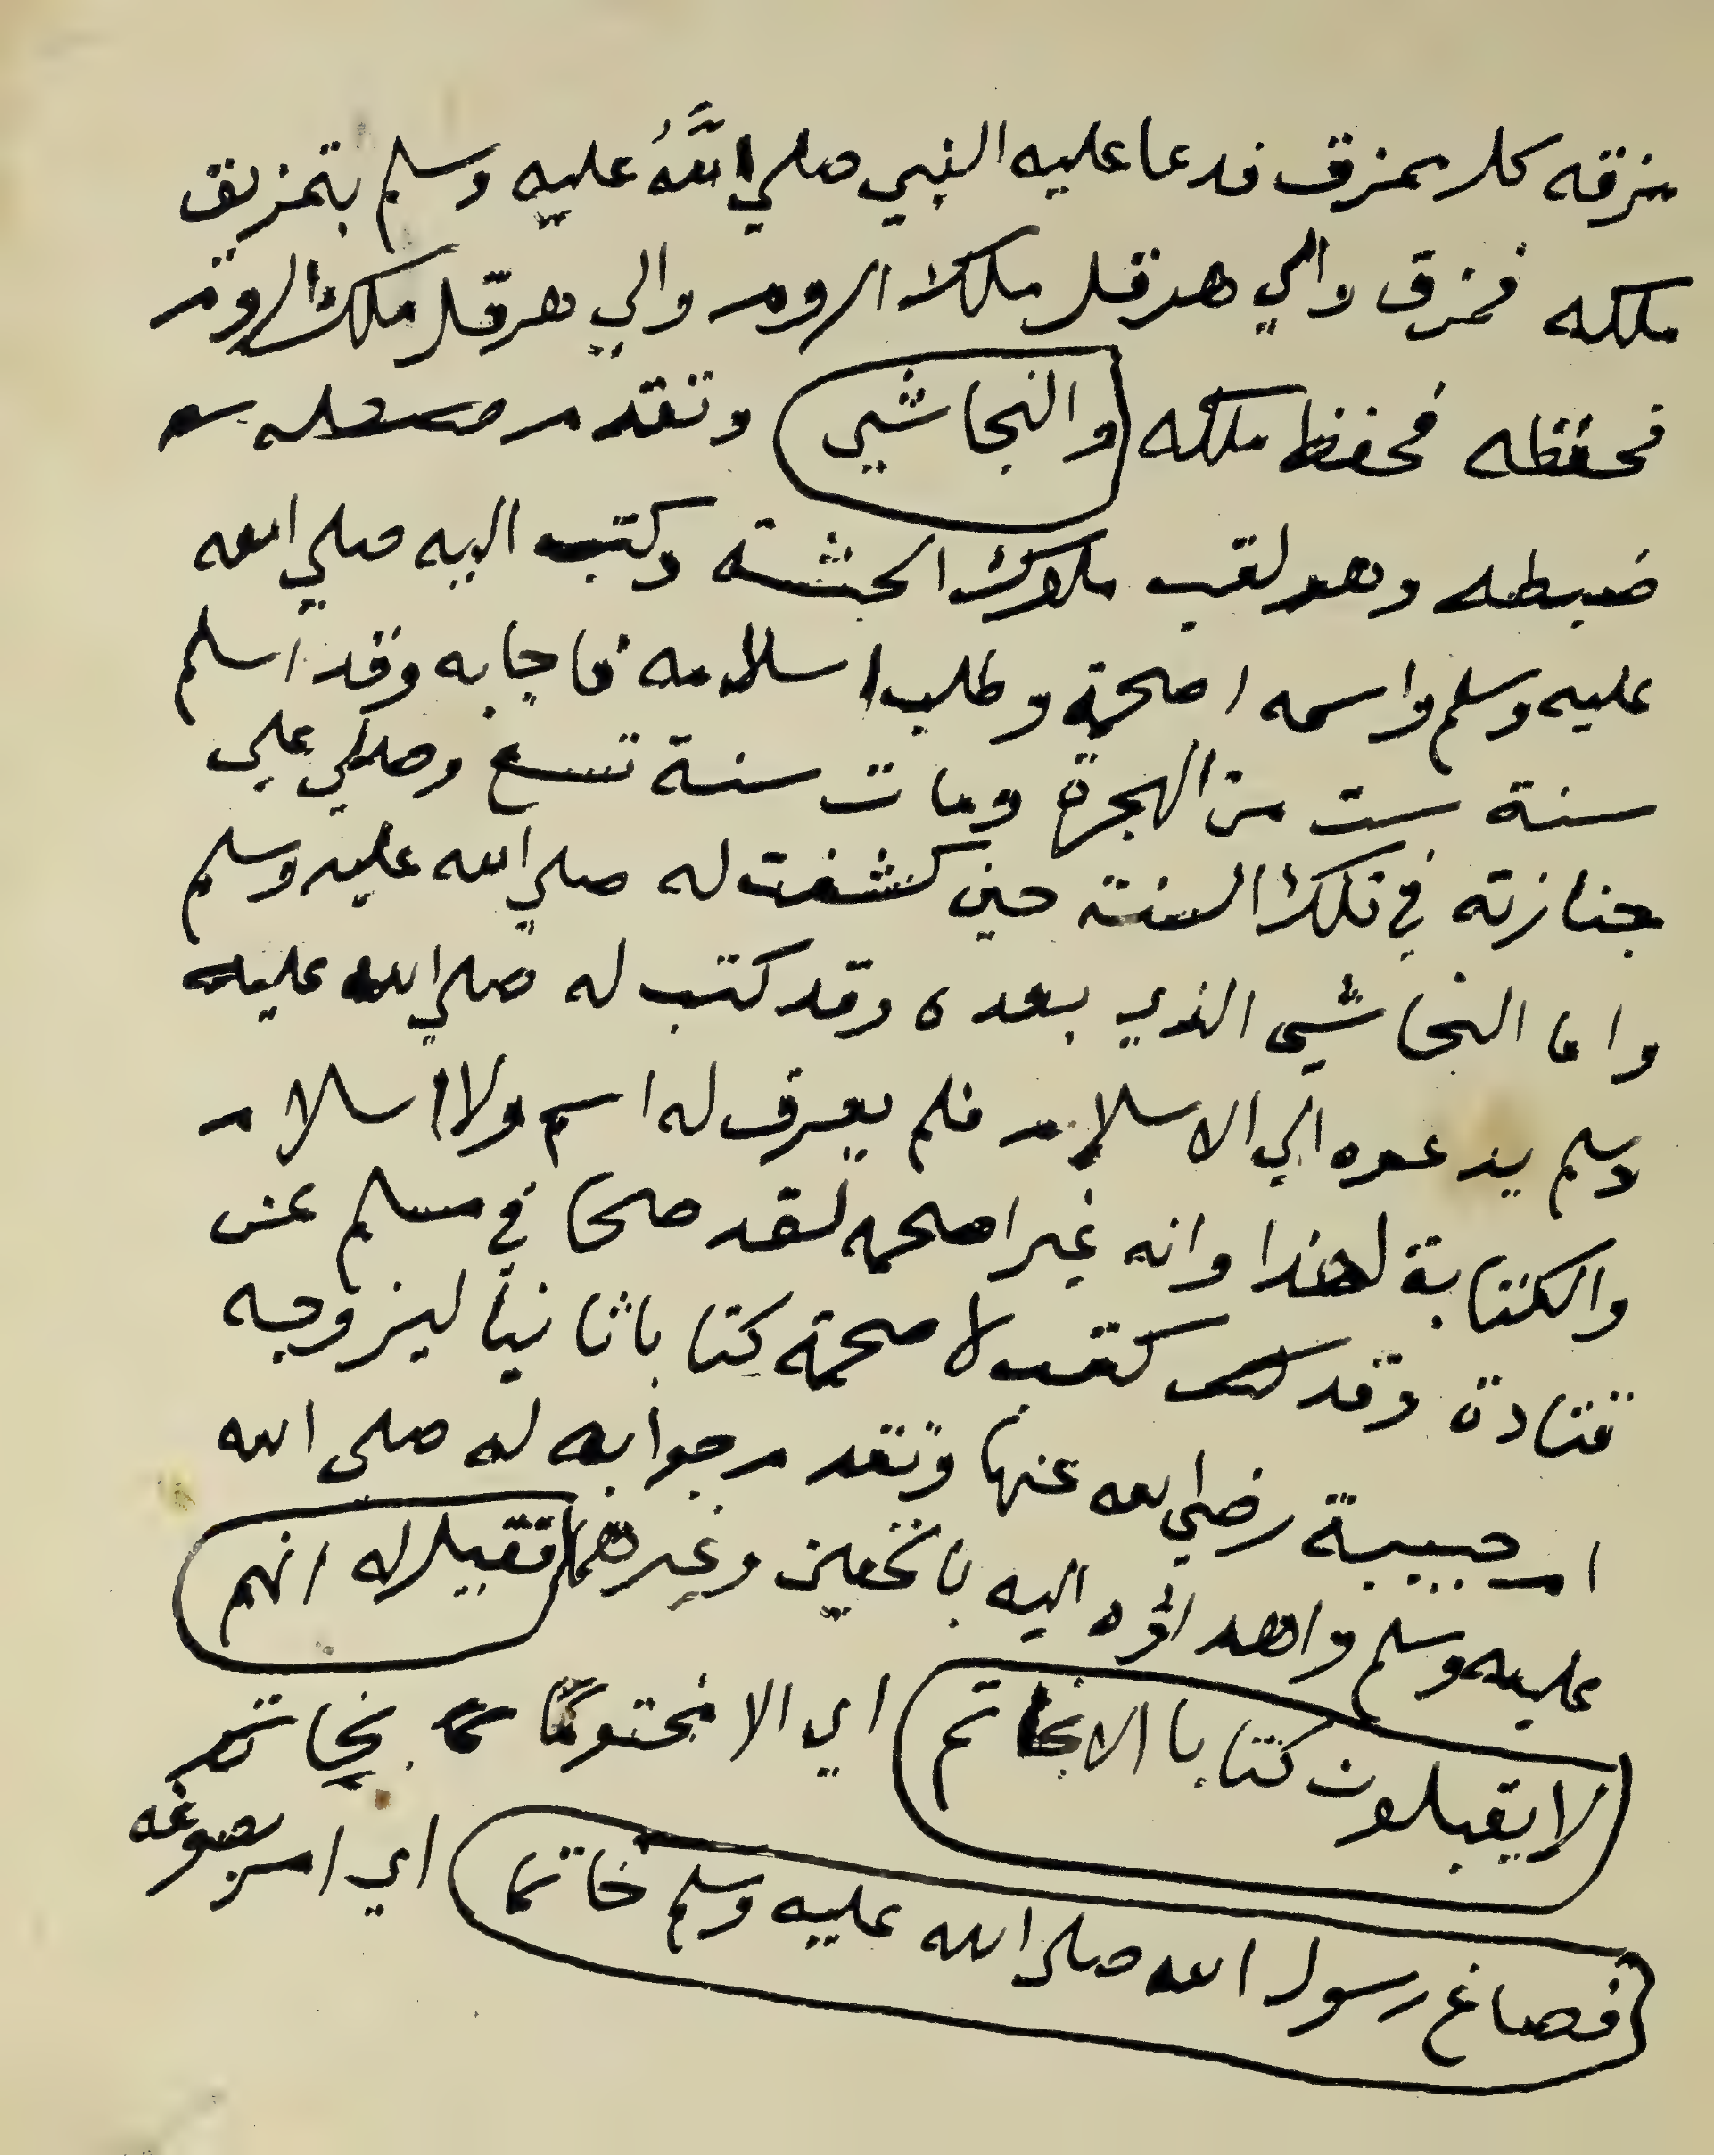 مزقه كل ممزق فدعا عليه النبي صلي اللَّهُ عليه وسلم بتمزيق
ملكه فمزق والي هرقل ملك الروم والي هرقل ملك الروم
فحفظه فحفظ ملكه والنجاشي وتقدم
ضبطه وهو لقب ملوك الحبشة وكتب اليه صلي الله
عليه وسلم واسمه اصحمة وطلب اسلامه فاجابه وقد اسلم
سنة ست من الهجرة ومات سنة تسع وصلي علي
جنازته في تلك السنة حين كشفت له صلي الله عليه وسلم
واما النجاشي الذي بعده وقد كتب له صلي الله عليه
وسلم يدعوه الي الاسلام فلم يعرف له اسم ولا اسلام
والكتابة لهذا وانه غير اصحمه لقد صحا في مسلم عن
قتادة وقد كتب لاصحمة كتابا ثانيا ليزوجه
ام حبيبة رضي الله عنها وتقدم جوابه له صلي الله
عليه وسلم واهداؤه اليه بالخفين وغيرهما فقيل له انهم
لا يقبلون كتابا الا بخاتم اي الا مختوما بخاتم
فصاغ رسول الله صلي الله عليه وسلم خاتما اي امر بصوغه